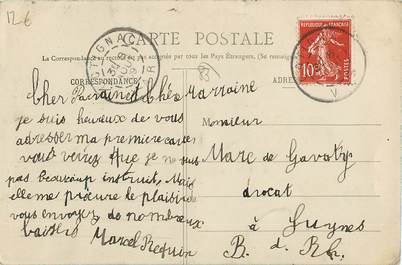 126
CARTE POSTALE
La Correspondance au recto n'est pas acceptée par tous les Pays Étrangers. (Se renseigner
CORRESPONDANCE
ADRESSE
COTIGNAC
VAR
10
Cher Parrain et Chère Marraine
je suis heureux de vous
adresser ma première carte
vous verrez que je ne suis
pas beaucoup instruit, Mais
elle me procure le plaisir de
vous envoyez de nombreux
baisers
Marcel Requin
Monsieur
Marc de Gavoty
avocat
à Fuynes
B. d. Rh.